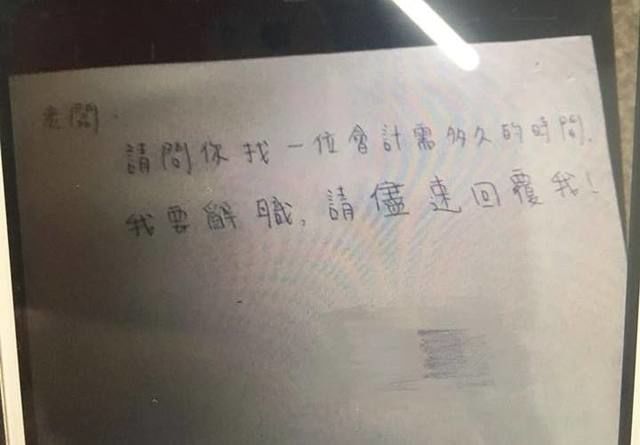 老闆.
請問你找一位會計需多久的時間.
我要辭職,請儘速回覆我!